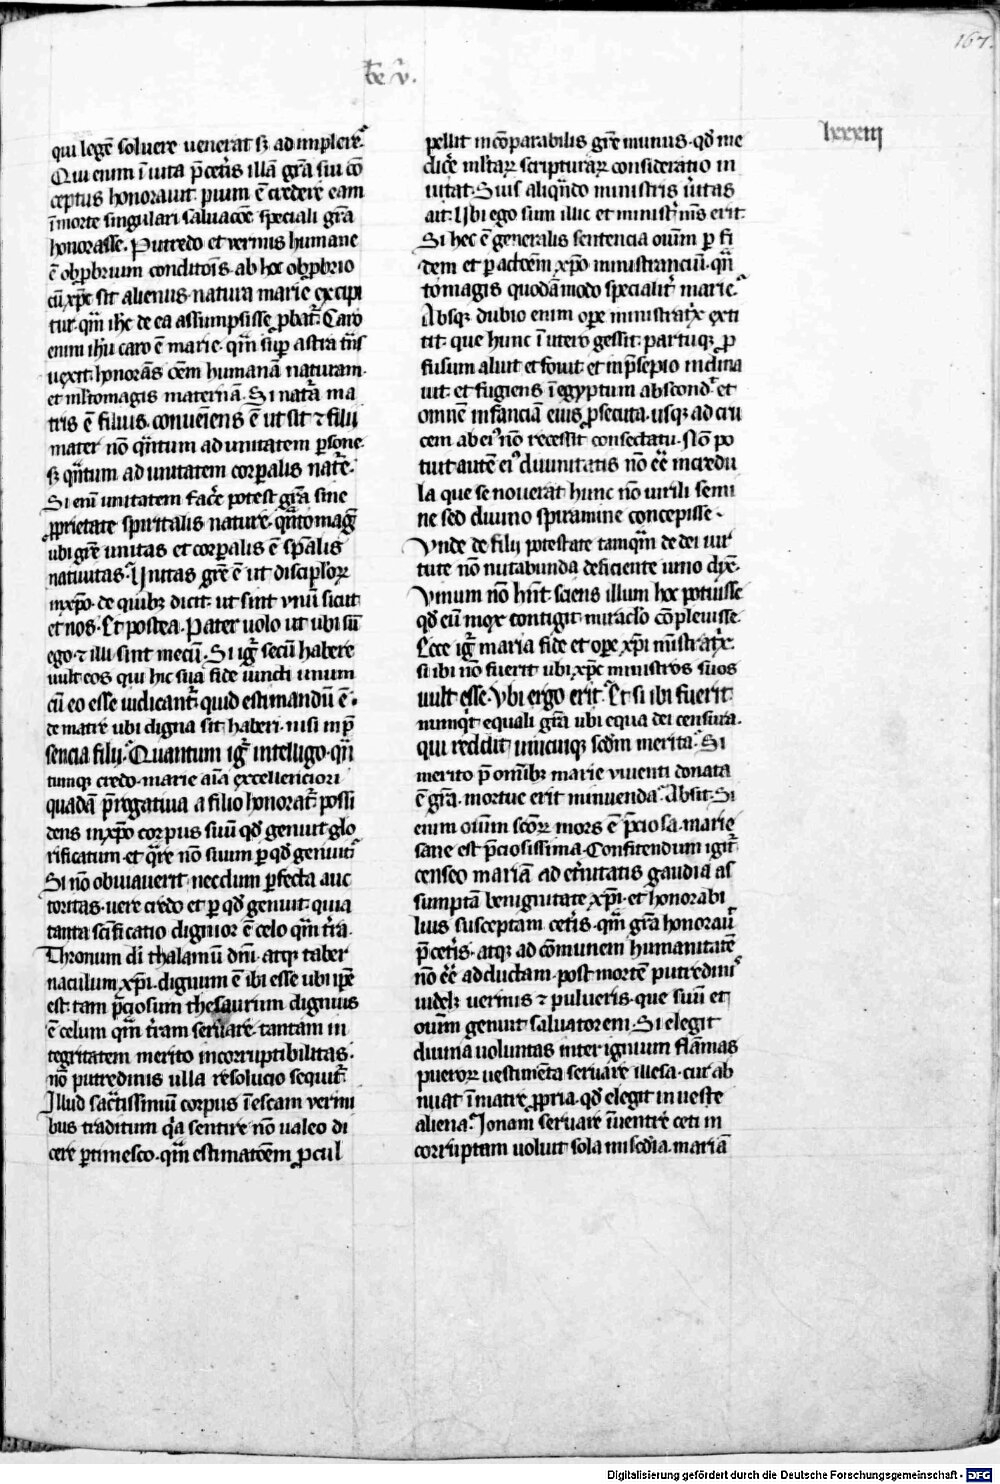 167.
be v̄.
lxxxiij
qui legē soluere uenerat sꝫ ad implere.
Qui enim ī uita p̄cet̄is illā gr̄a sui cō
ceptus honorauit. pium ē credere eam
ī morte singulari saluacōe speciali gr̄a
honorasse. Putredo et vermis humane
ē obꝓbrium condit̄ois. ab hoc obꝓbrio
cū xp̄c sit alienus. natura marie excipi
tur. qm̄ ih̄c de ea assumpsisse ꝓbat̄. Caro
enim ih̄u caro ē marie. qm̄ suꝑ astra tn̄s
uexit. honorās oēm humanā naturam.
et ml̄tomagis maternā. Si nat̄a ma
tris ē filius. conueīens ē ut sit ⁊ filij
mater nō qn̄tum ad unitatem ꝑsone.
sꝫ qn̄tum ad unitatem corꝑalis nat̄e.
Si enī unitatem fac̄e potest gr̄a sine
ꝓprietate spiritalis nature. qn̄tomaḡ
ubi gr̄e unitas et corꝑalis ē sp̄alis
natiuitas. Unitas gr̄e ē ut discipl̄oꝝ
in xp̄o. de quibꝫ dicit. ut sint vnū sicut
et nos. Et postea. Pater uolo ut ubi sū
ego. ⁊ illi sint mecū. Si iḡr secū habere
uult eos qui hic sua fide iuncti unum
cū eo esse iudicant̄. quid estimandū ē.
de matre ubi digna sit haberi. nisi in p̄
sencia filij. Quantum iḡr intelligo. qn̄
tumqꝫ credo. marie aīa excellenciori
quadā p̄rogatiua a filio honorat̄. possi
dens in xp̄o corpus suū qd̄ genuit glo
rificatum. et q̄re nō suum ꝑ qd̄ genuit.
Si nō obuiauerit necdum ꝑfecta auc
toritas. uere credo et ꝑ qd̄ genuit. quia
tanta sc̄ificatio dignior ē celo qm̄ t̄ra.
Thronum dī thalamū dn̄i. atqꝫ taber
naculum xp̄i. dignum ē ibi esse ubi ip̄e
est. tam p̄ciosum thesaurum dignius
ē celum qm̄ t̄ram seruare. tantam in
tegritatem merito incorruptibilitas.
nō putredinis ulla resolucio sequit̄.
Illud sac̄tissimū corpus ī escam vermi
bus traditum q̄a sentire nō ualeo di
cere ꝑtimesco. qm̄ estimatoēm ꝓcul
pellit incōparabilis gr̄e munus. qd̄ me
dic̄e ml̄taꝝ scripturaꝝ consideratio in
uitat. Suis aliqn̄do ministris ūitas
ait. Ubi ego sum illic et minist̄ m̄s erit.
Si hec ē generalis sentencia oīum ꝑ fi
dem et ꝑ actoēm xp̄o ministranciū. qn̄
tomagis quodāmodo specialit̄ marie.
Absqꝫ dubio enim oꝑe ministrat̄x exti
tit. que hunc ī utero gessit. partuqꝫ ꝓ
fusum aluit et fouit. et in p̄sepio inclina
uit. et fugiens ī egyptum abscond̄t. et
omnē infanciā eius ꝓsecuta. usqꝫ ad cru
cem ab ei⁹ nō recessit consectatu. Nō po
tuit autē ei⁹ diuinitatis nō eē incredu
la que se nouerat hunc nō uirili semi
ne sed diuino spiramine concepisse.
Vnde de filij potestate tamqm̄ de dei uir
tute nō nutabunda deficiente uino dix̄.
Vinum nō hn̄t. sciens illum hoc potuisse
qd̄ eū mox contigit miraclo cōpleuisse.
Ecce iḡr maria fide et oꝑe xp̄i mīstrat̄x.
si ibi nō fuerit ubi xp̄c ministros suos
uult esse. Vbi ergo erit. Et si ibi fuerit
numq̄t equali gr̄a ubi equa dei censura.
qui reddit unicuiqꝫ scdm̄ merita. Si
merito p̄ omībꝫ marie viuenti donata
ē gr̄a. mortue erit minuenda. Absit. Si
enim oīum scōꝝ mors ē p̄ciosa. marie
sane est p̄ciosissima. Confitendum igit̄
censeo mariā ad et̄nitatis gaudia as
sumptā benignitate xp̄i. et honorabi
lius susceptam cet̄is. qm̄ gr̄a honorau̅
p̄cet̄is. atqꝫ ad cōmunem humanitatē
nō eē adductam. post mortē putredinis
uidelꝫ uermis ⁊ pulueris. que suū et
oīum genuit saluatorem. Si elegit
diuina uoluntas inter ignium flāmas
pueroꝝ uestimēta seruare illesa. cur ab
nuat ī matre ꝓpria. qd̄ elegit in ueste
aliena. Jonam seruare ī uentre ceti in
corruptam uoluit sola mis̄cdia. mariā
Digitalisierung gefördert durch die Deutsche Forschungsgemeinschaft - DFG